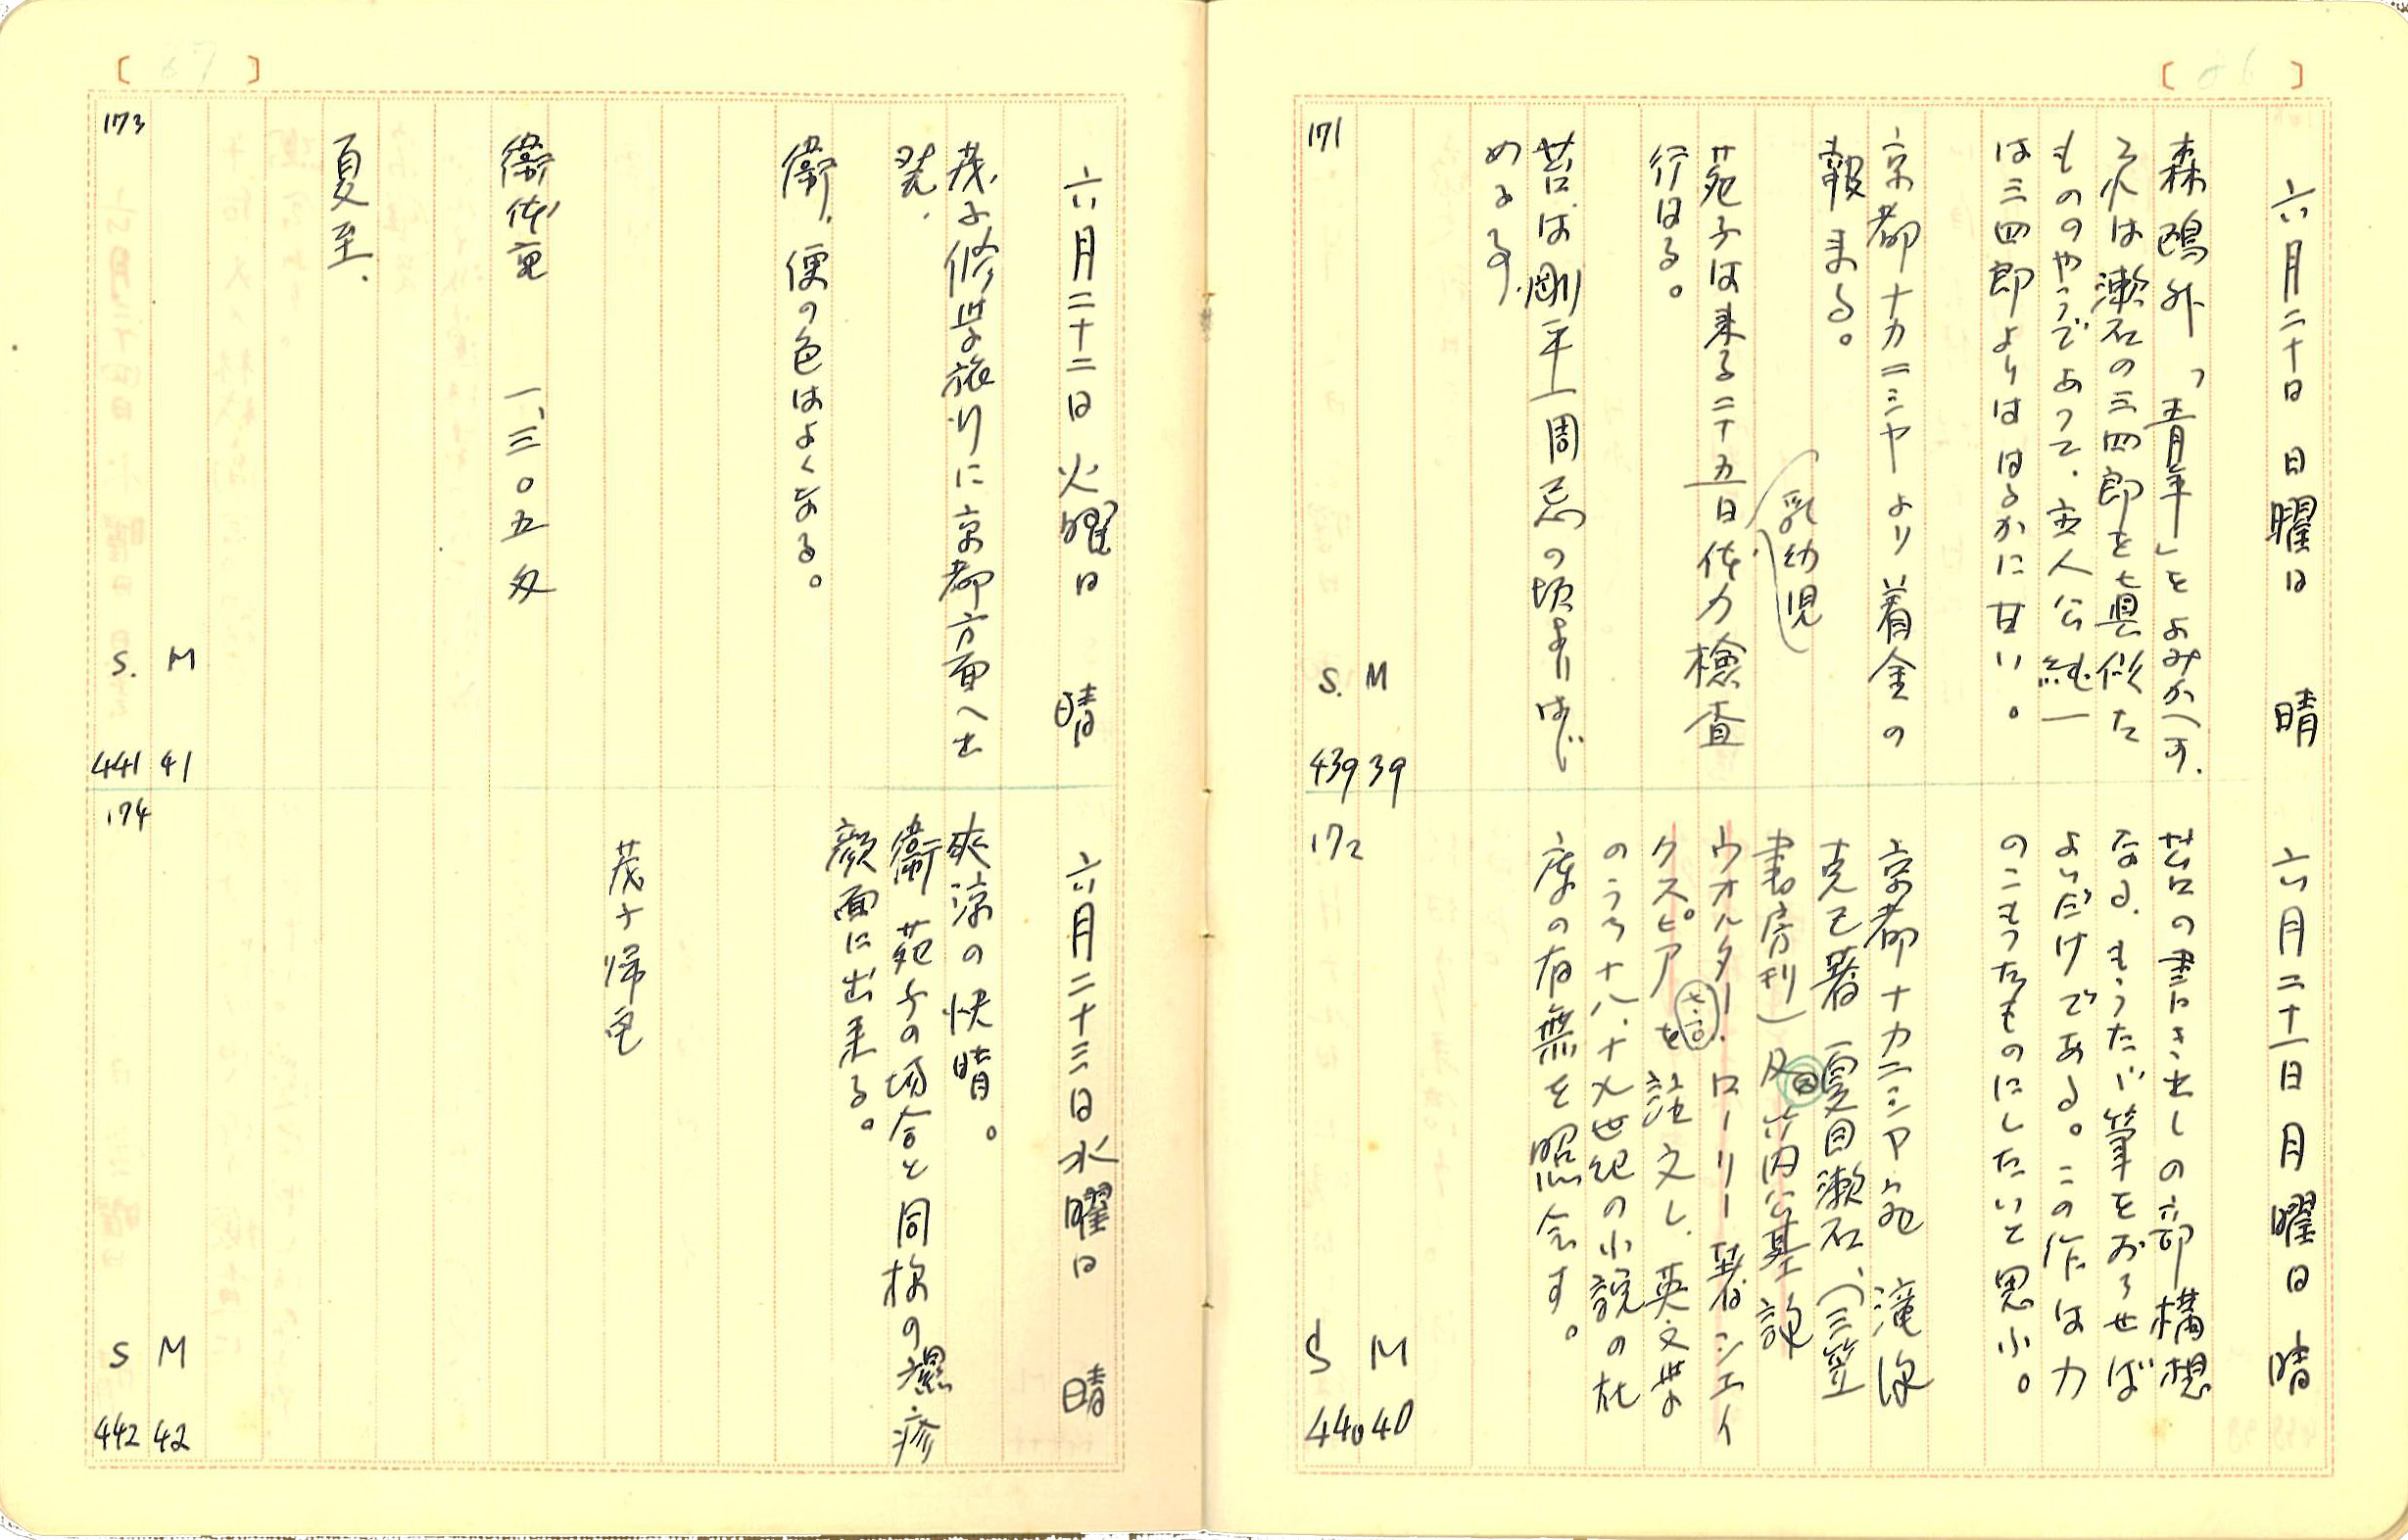 六月二十日 日曜日 晴
森鴎外「青年」をよみかへす.
それは漱石の三四郎を真似た
もののやうであつて、主人公純一
は三四郎よりははるかに甘い。
京都ナカニシヤより着金の
報来る。
(乳幼児)
苑子は来る二十五日体力検査
行はる。
苔は剛平一周忌の頃よりはじ
める.
171
M 39
S. 439
六月二十一日 月曜日 晴
苔の書き出しの一部構想
なる.もうただ筆をおろせば
よいだけである。この作は力
のこもつたものにしたいと思ふ。
京都ナカニシヤ宛 滝沢
克己著 夏目漱石、(三笠
書房刊)及 竹内公基訳
ウオルター・ローリー著シエイ
クスピアを註文し、英文学
のうち十八、十九世紀の小説の在
庫の有無を照会す。
七.一〇.
172
M 40
S 440
六月二十二日 火曜日 晴
茂子修学旅行に京都方面へ出
発.
衛、便の色はよくなる。
衛体重 一、三〇五匁
夏至.
173
M 41
S. 441
六月二十三日 水曜日 晴
爽涼の快晴。
衛 苑子の場合と同様の濕疹
顔面に出来る。
茂子帰宅
174
M 42
S 442